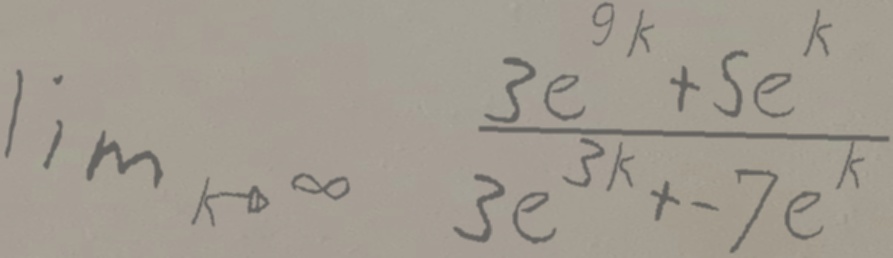 lim_{k→∞} \frac{3e^{9k}+5e^{k}}{3e^{3k}+-7e^{k}}